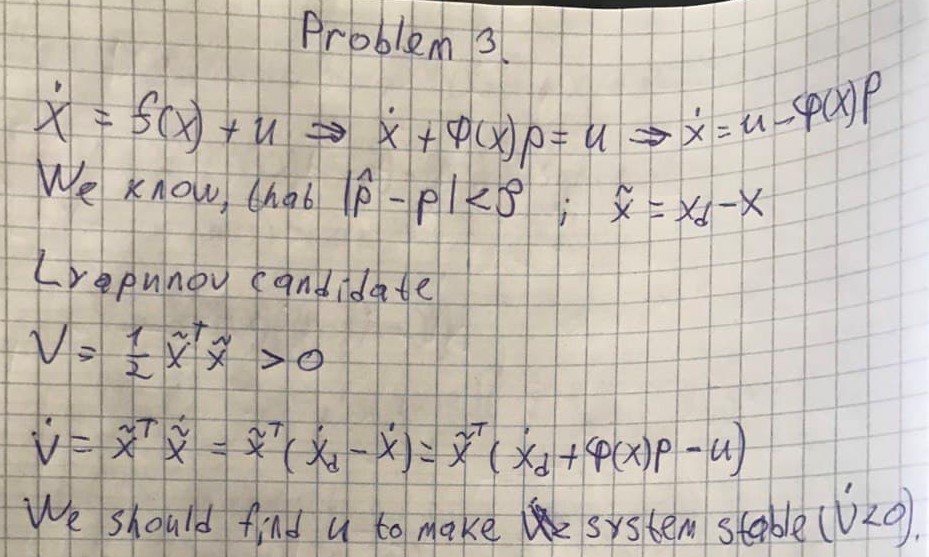 Problem 3.
ẋ = f(x) + u ⇒ ẋ + φ(x)p = u ⇒ ẋ = u - φ(x)p
We know, that |p̂ - p| < ρ ; x̃ = x_d - x
Lyapunov candidate
V = 1/2 x̃ᵀx̃ > 0
V̇ = x̃ᵀ x̃̇ = x̃ᵀ(ẋ_d - ẋ) = x̃ᵀ(ẋ_d + φ(x)p - u)
We should find u to make system stable (V̇<0).